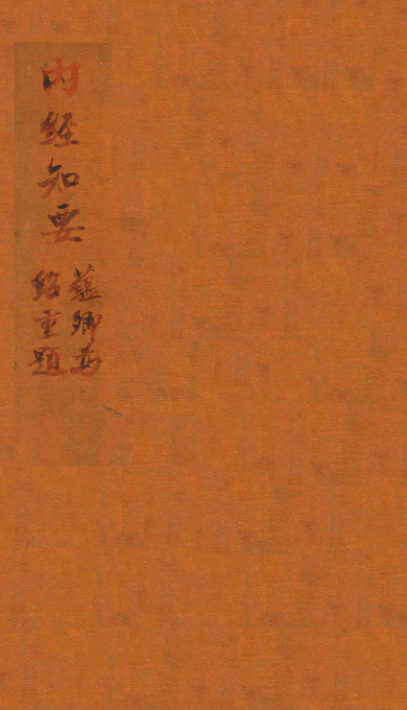 内經知要
蘊卿
銘重題